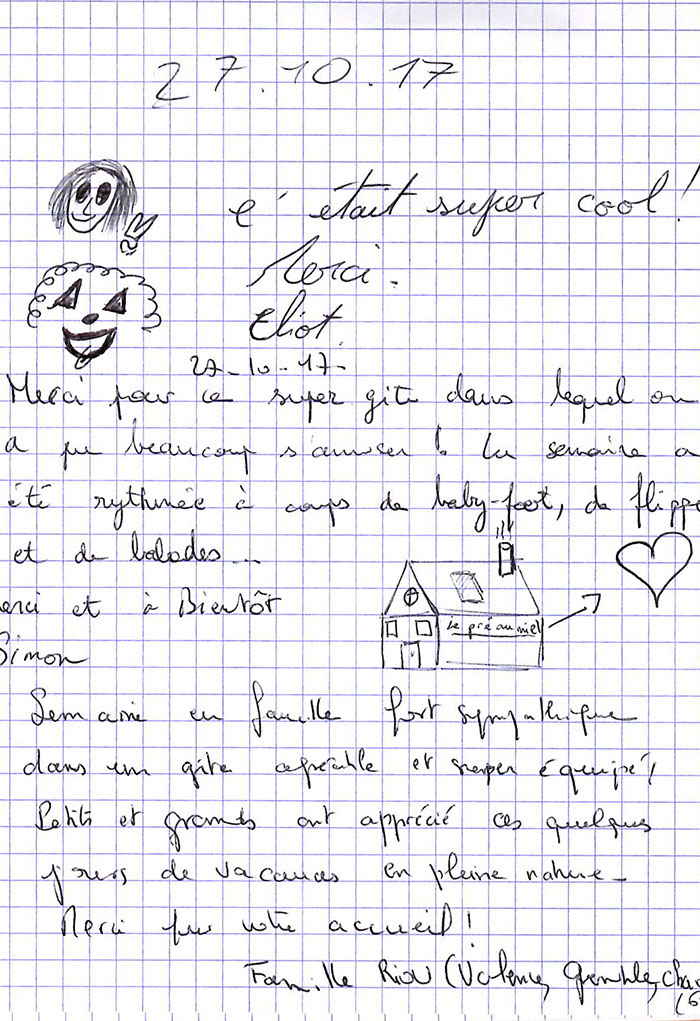 27.10.17
c'était super cool!
Merci.
Eliot
27-10-17-
Merci pour ce super gite dans lequel on
a pu beaucoup s'amuser! La semaine a
été rythmée à coups de baby-foot, de flippe
et et de balades...
erci et à Bientôt
le pré au miel
Simon
Semaine en famille fort sympathique
dans un gîte agréable et super équipé!
Petits et grands ont apprécié ces quelques
jours de vacances en pleine nature-
Merci pour votre accueil!
Famille Riou (Valence, Grenoble, Cha
(6